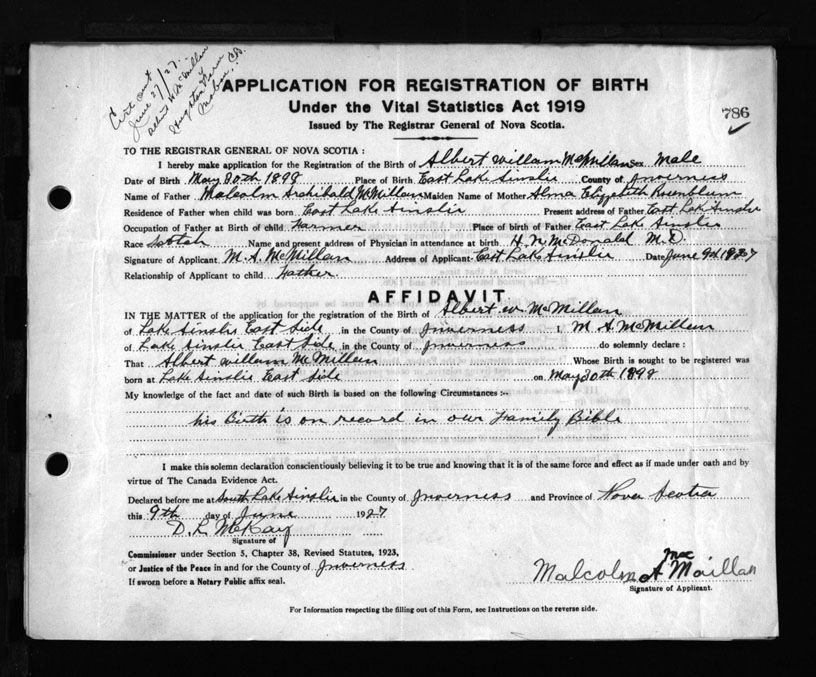 Cert out
June 27/27.
APPLICATION FOR REGISTRATION OF BIRTH
Under the Vital Statistics Act 1919
Issued by The Registrar General of Nova Scotia.
786
TO THE REGISTRAR GENERAL OF NOVA SCOTIA :
I hereby make application for the Registration of the Birth of Albert William McMillan Sex Male
Date of Birth May 20th 1898 Place of Birth East Lake Ainslie County of Inverness
Name of Father Malcolm Archibald McMillan Maiden Name of Mother Alma Elizabeth Rosenblum
Residence of Father when child was born East Lake Ainslie Present address of Father East Lake Ainslie
Occupation of Father at Birth of child Farmer Place of birth of Father East Lake Ainslie
Race Scotch Name and present address of Physician in attendance at birth H. N. McDonald M.D.
Signature of Applicant M. A. McMillan Address of Applicant East Lake Ainslie Date June 9th 1927
Relationship of Applicant to child Father.
AFFIDAVIT
IN THE MATTER of the application for the registration of the Birth of Albert W McMillan
of Lake Ainslie East Side in the County of Inverness I, M A McMillan
of Lake Ainslie East Side in the County of Inverness do solemnly declare :
That Albert William McMillan Whose Birth is sought to be registered was
born at Lake Ainslie East Side on May 20th 1898
My knowledge of the fact and date of such Birth is based on the following Circumstances :--
his Birth is on record in our Family Bible
I make this solemn declaration conscientiously believing it to be true and knowing that it is of the same force and effect as if made under oath and by
virtue of The Canada Evidence Act.
Declared before me at South Lake Ainslie in the County of Inverness and Province of Nova Scotia
this 9th day of June 1927
D. L. McKay
Signature of
Commissioner under Section 5, Chapter 38, Revised Statutes, 1923,
or Justice of the Peace in and for the County of Inverness
If sworn before a Notary Public affix seal.
Malcolm A MacMillan
Signature of Applicant.
For Information respecting the filling out of this Form, see Instructions on the reverse side.